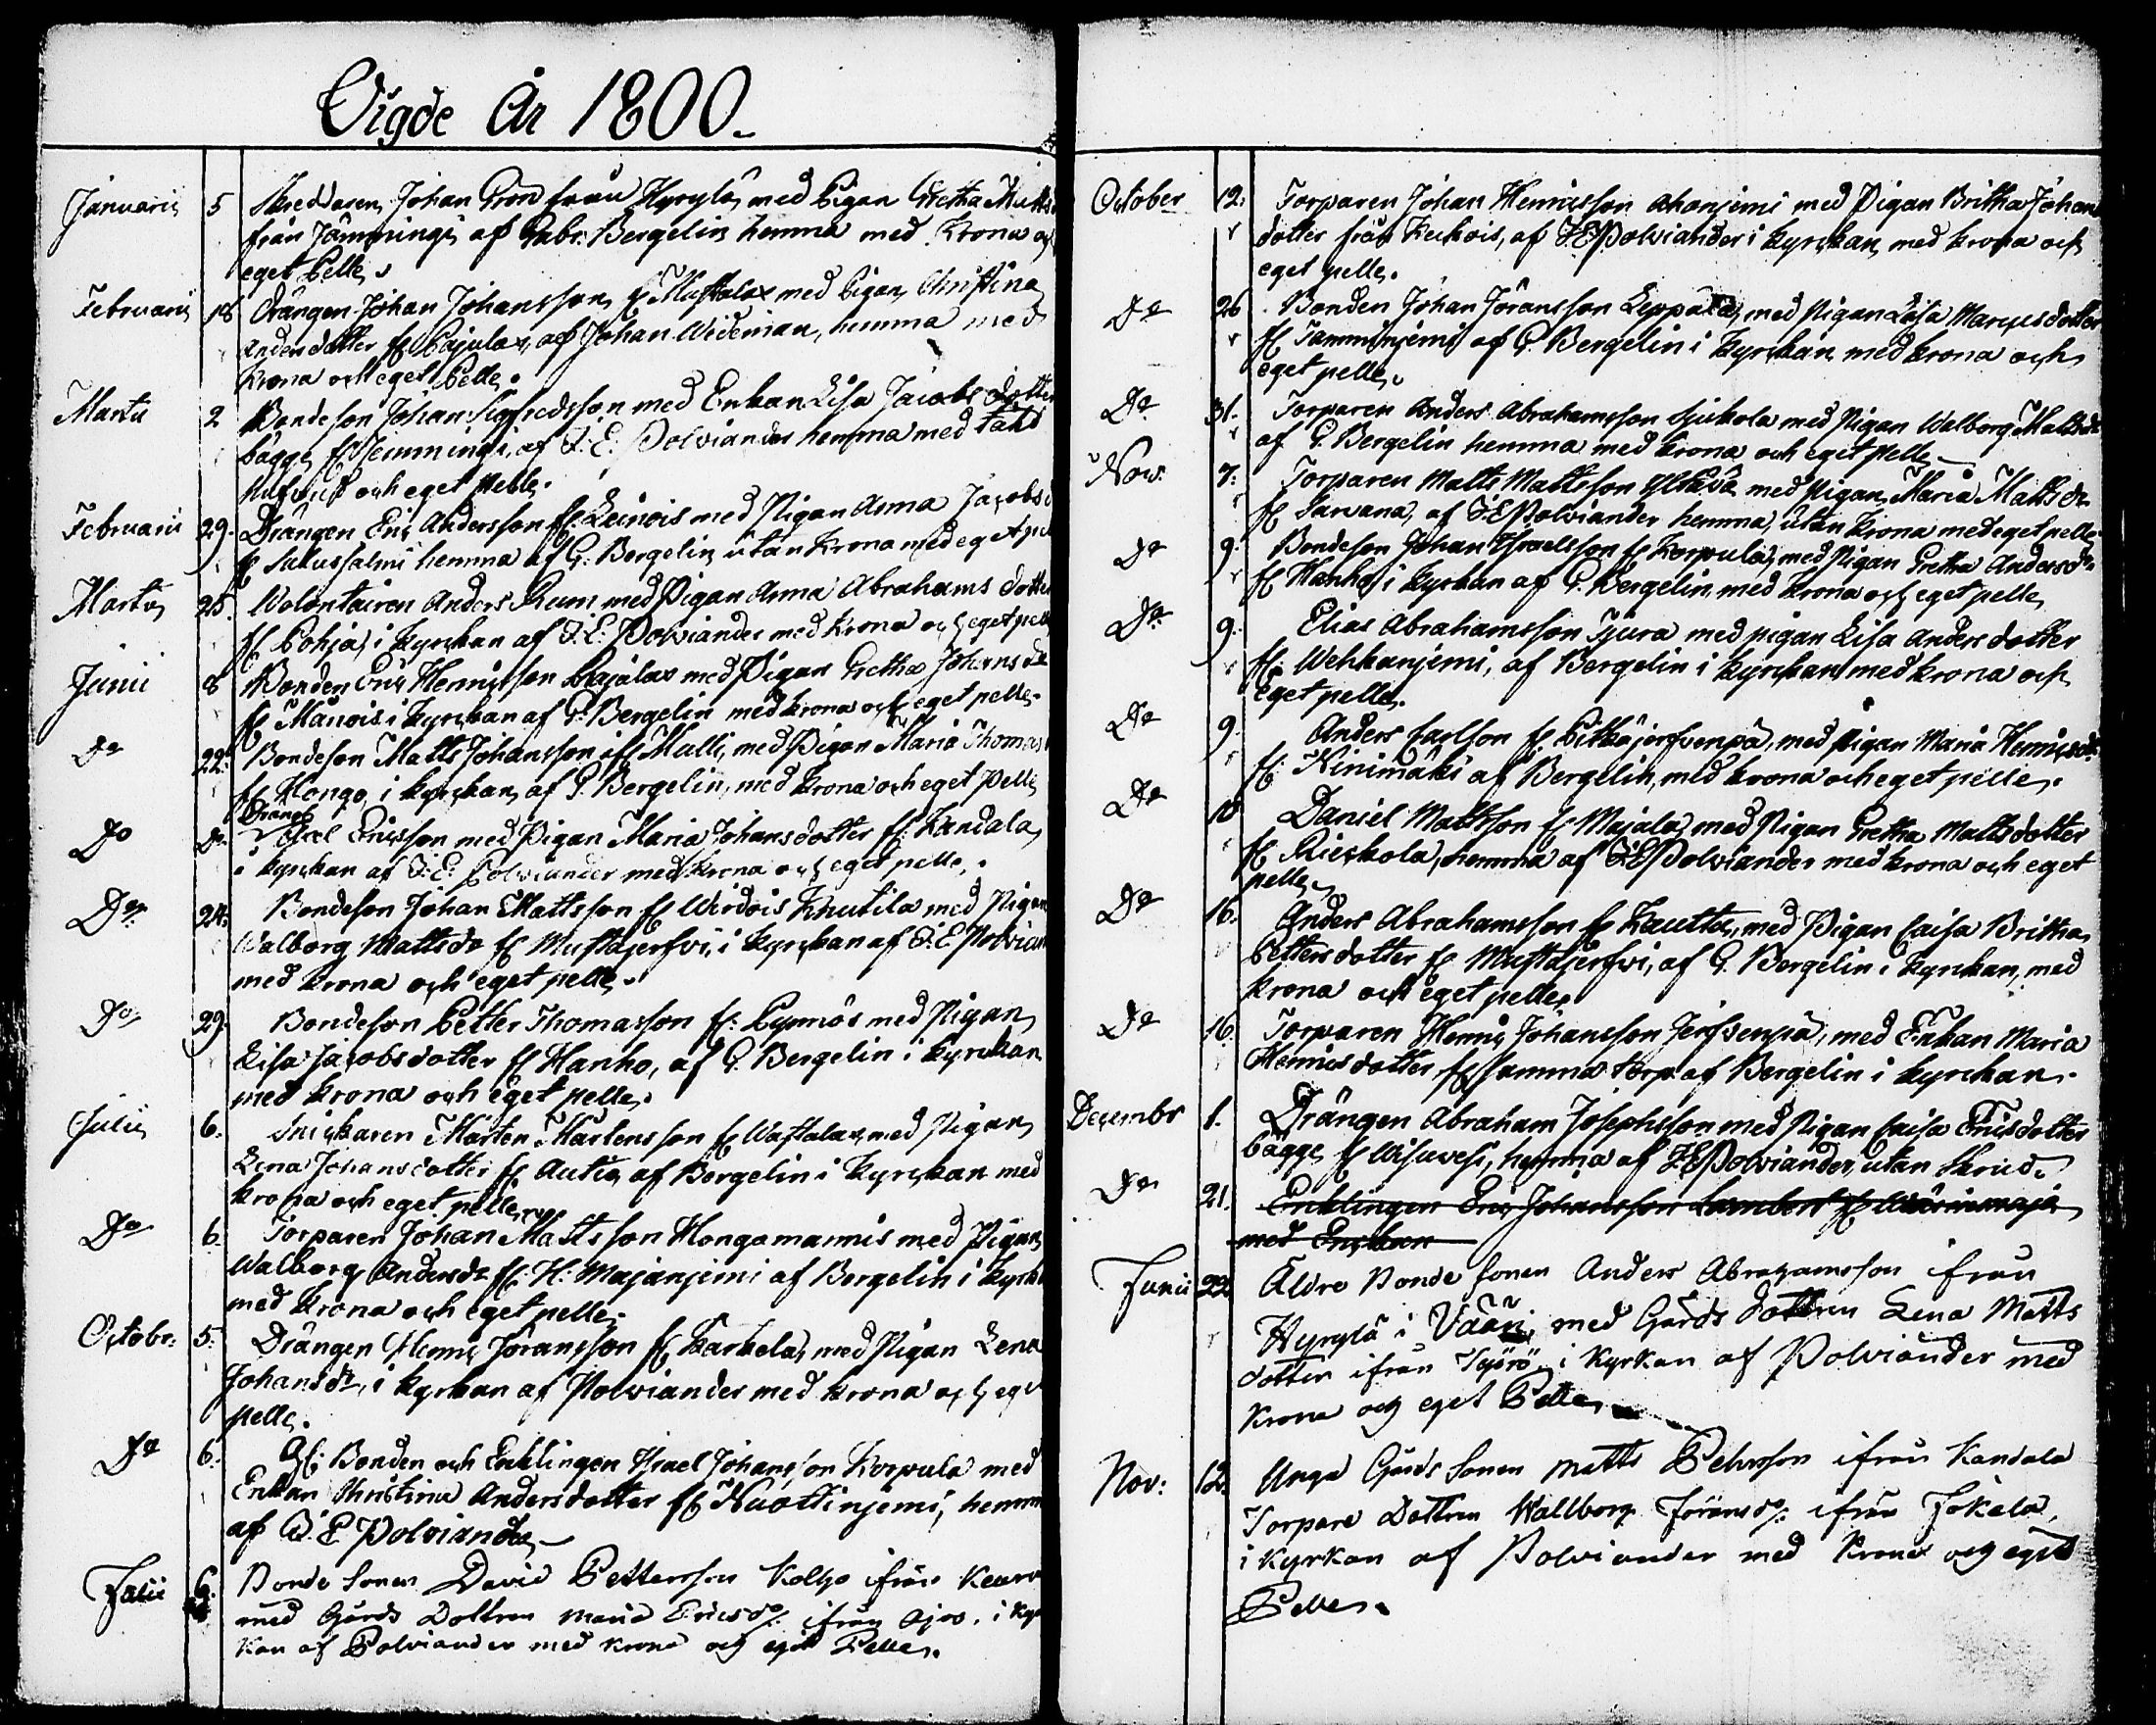 Vigde År 1800.
Januarii 5 Skreddaren Johan Grön från Hyrylä med Pigan Gretha Matts
från Jämminge, af Gabr. Bergelin hemma med Krona och
eget Pelle.
Februarii 18 Drängen Johan Johansson fr Mustalax med Pigan Christina
Andersdotter fr Pajulax, af Johan Wideman, hemma med
Krona och eget Pelle.
Martii 2 Bondeson Johan Sigfredsson med Enkan Lisa Jacobs dotter
bägge fr Jemminge, af J. E. Polviander hemma med
och eget Pelle.
Februarii 29. Drängen Eric Andersson fr Leinois med Pigan Anna Jacobs d
fr Salussalmi hemma af G. Bergelin utan Krona med eget pe
Martii 25. Volontairen Anders Rum med Pigan Anna Abrahams dotter
fr Pohja, i kyrckan af J. E. Polviander med Krona och eget pelle
Junii 8 Bonden Eric Henricsson Pajulax med Pigan Gretha Johans dr
fr Mänois i kyrckan af G. Bergelin med krona och eget pelle.
Do 22. Bondeson Matts Johansson ifr Malli, med Pigan Maria Thomas
fr Hongo, i kyrckan, af G. Bergelin, med Krona och eget Pelle
Dräng
Do Do Axel Ericsson med Pigan Maria Johansdotter fr Kandala,
i kyrckan af J. E. Polviander med Krona och eget pelle.
Do 24. Bondeson Johan Mattsson fr Wirdois Knutila med Pigan
Walborg Mattsdr fr Mustajerfvi, i kyrckan af J. E Polvian
med krona och eget pelle.
Do 29. Bondeson Petter Thomasson fr. Pynnös med Pigan
Lisa Jacobsdotter fr Hanho, af G. Bergelin i kyrckan
med krona och eget pelle.
Julii 6. Snickaren Mårten Mårtensson fr Wastalax, med Pigan
Lena Johansdotter fr Autio, af Bergelin i kyrckan med
krona och eget pelle.
Do 6. Torparen Johan Mattsson Hongomannis med Pigan
Walborg Andersdr fr. H. Majanjemi af Bergelin i kyrck
med krona och eget pelle.
Octobr: 5. Drängen Henric Jöransson fr Karhela, med Pigan Lena
Johansdr, i kyrckan af Polviander med krona och eget
pelle.
Do 6. Gl: Bonden och Enklingen Israel Johansson Korpula med
Enkan Christina Andersdotter fr Nuottinjemi, hemma
af J. E Polviander
Julii 6. Bonde Sonen David Pettersson Kolho ifrån Keuru
med Gårds Dottren Maria Ericsdr. ifrån Ajos, i kyr
kan af Polviander med krona och eget Pelle.
October 12. Torparen Johan Henricsson Ahonjemi med Pigan Britha Johans
dotter från Keckois, af J E Polviander i kyrckan, med krona och
eget pelle.
Do 26. Bonden Johan Jöransson Leppälä, med Pigan Lisa Marcusdotter
fr Tamminjemi af G. Bergelin i kyrckan, med krona och
eget pelle.
Do 31. Torparen Anders Abrahamsson Sjukola med Pigan Walborg Mattsdr
af G. Bergelin hemma med krona och eget pelle
Nov. 7. Torparen Matts Mattsson Ylävä med Pigan, Maria Mattsdr
fr Sarvana, af J E Polviander hemma, utan krona med eget pelle
Do 9. Bondeson Johan Israelsson fr Korpula, med Pigan Gretha Andersdr
fr Hanho, i kyrckan af G. Bergelin, med krona och eget pelle
Do 9. Elias Abrahamsson Tjura med pigan Lisa Andersdotter
fr. Wehkanjemi, af Bergelin i kyrckan med krona och
eget pelle.
Do 9. Anders Carlsson fr. Pitkäjerfvenpä, med Pigan Maria Henricsdr.
fr. Kinimäki af Bergelin, med krona och eget pelle.
Do 10 Daniel Mattsson fr Majala, med Pigan Gretha Mattsdotter
fr Rieckola, hemma af J E Polviander med krona och eget
pelle.
Do 16. Anders Abrahamsson fr Kautta, med Pigan Caisa Britha
Pettersdotter fr Mustajerfvi, af G. Bergelin i kyrckan, med
krona och eget pelle.
Do 16. Torparen Henric Johansson Jerfvenpä, med Enkan Maria
Henricsdotter fr samma torp af Bergelin i kyrckan.
Decembr 1. Drängen Abraham Josephsson med Pigan Caisa Ericsdotter
bägge fr Wisuvesi, hemma af J E Polviander, utan skrud.
Do 21. Enklingen Eric Johansson Lambert fr
med Enckan
Junii 22 Äldre Bonde Sonen Anders Abrahamsson ifrån
Hyrylä i Vääri, med Gårds dottren Lena Matts
dotter ifrån Työrö, i Kyrkan af Polviander med
Krona och eget Pelle.
Nov: 12. Unga Gårds Sonen Matts Pehrsson ifrån Kandala
Torpare Dottren Wallborg Jöransdr. ifrån Jokela,
i kyrkan af Polviander med Krona och eget
Pelle.